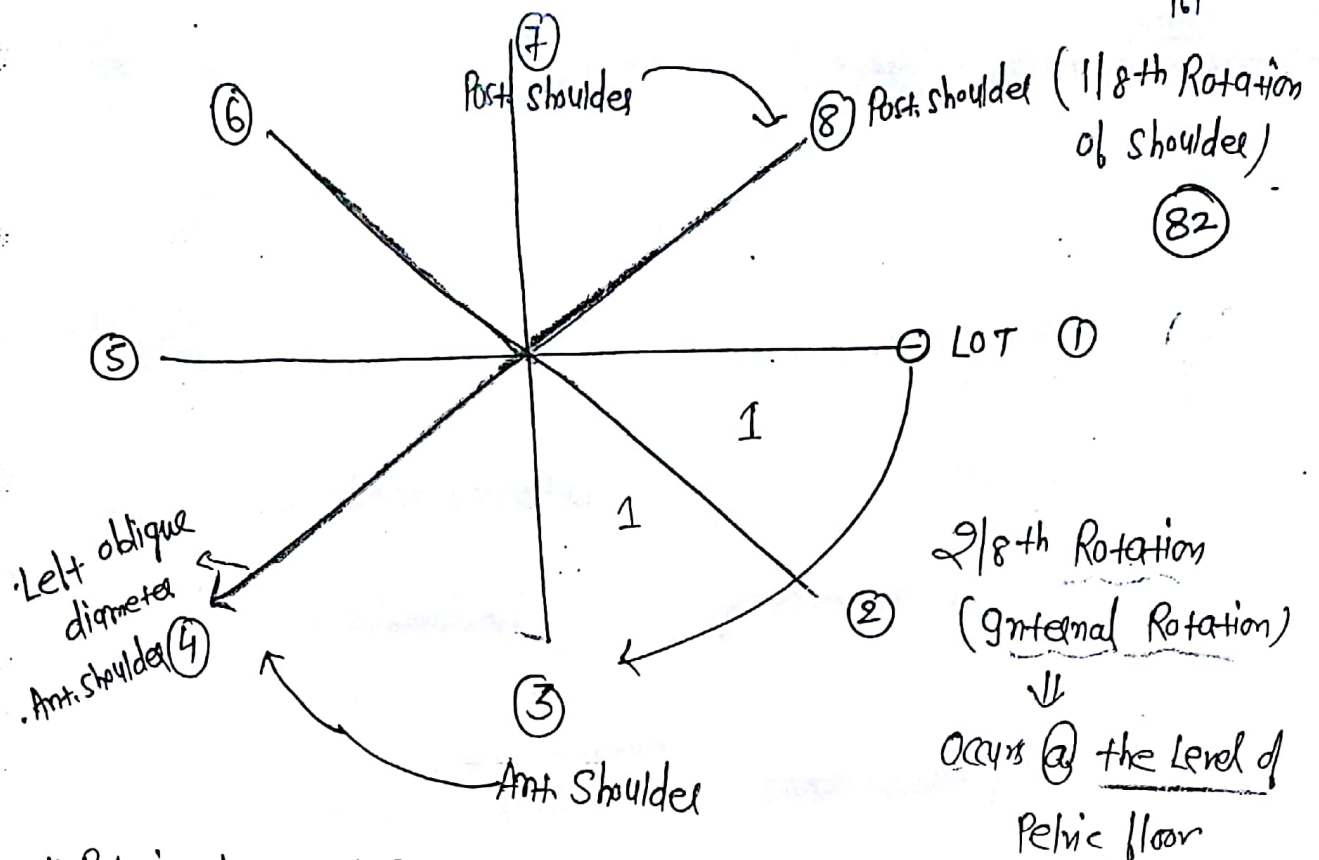 161
7
Post. Shoulder
6
8 Post. Shoulder (1/8th Rotation
of Shoulder)
82
5
LOT 1
1
1
Left oblique
diameter
Ant. Shoulder 4
2
2/8th Rotation
(Internal Rotation)
3
Occurs @ the Level of
Pelvic floor
Ant. Shoulder